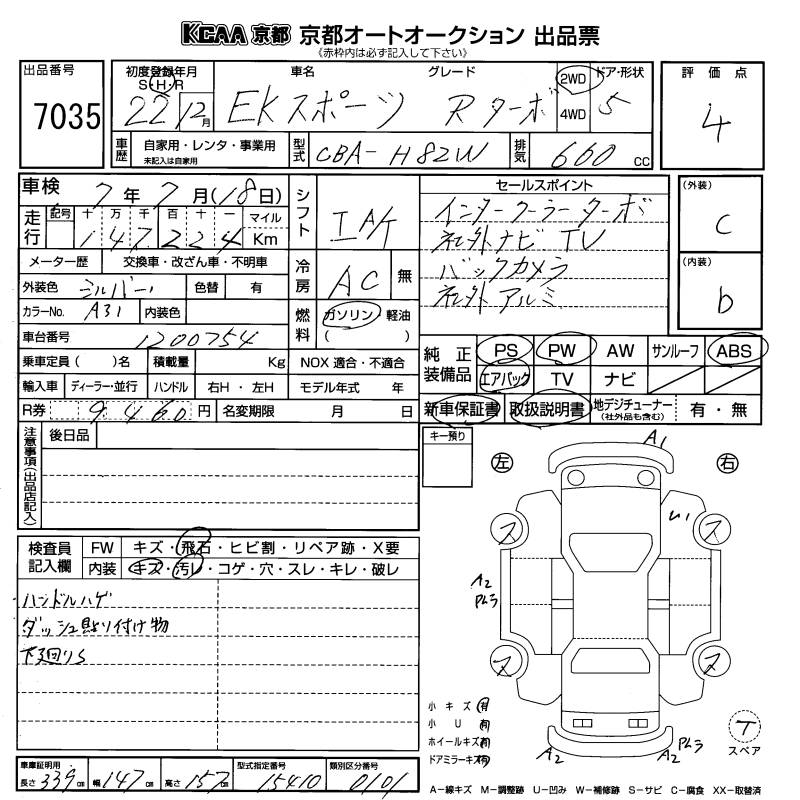 KCAA 京都 京都オートオークション 出品票
《赤枠内は必ず記入して下さい》
出品番号 初度登録年月 車名 グレード 2WD ドア・形状 評価点
S・H・R
7035 22年 12月 EKスポーツ Rターボ 4WD 5 4
車歴 自家用・レンタ・事業用 型式 CBA-H82W 排気 660 CC
未記入は自家用
車検 7年 7月(18日) シフト IA/T セールスポイント (外装)
走行 記号 十 万 千 百 十 一 マイル インタークーラーターボ C
147224 Km 社外ナビ TV
メーター歴 交換車・改ざん車・不明車 冷房 AC 無 バックカメラ (内装)
外装色 シルバー 色替 有 社外アルミ b
カラーNo. A31 内装色 燃料 ガソリン 軽油
車台番号 1200754 ( )
乗車定員( )名 積載量 Kg NOX 適合・不適合 純正装備品 PS PW AW サンルーフ ABS
輸入車 ディーラー・並行 ハンドル 右H・左H モデル年式 年 エアバック TV ナビ
R券 9460円 名変期限 月 日 新車保証書 取扱説明書 地デジチューナー 有・無
(社外品も含む)
注意事項(出品店記入) 後日品 キー預り
左 右
A1
U1
ス ス
検査員記入欄 FW キズ・飛石・ヒビ割・リペア跡・X要
内装 キズ・汚レ・コゲ・穴・スレ・キレ・破レ
A2
ハンドルハゲ
ダッシュ貼り付け物
下廻りS
ス ス
小キズ 有
小U 有
ホイールキズ 有
ドアミラーキズ 有
A2 A2
テ
スペア
車庫証明用 型式指定番号 類別区分番号
長さ 339cm 幅 147cm 高さ 157cm 15410 0101
A－線キズ M－調整跡 U－凹み W－補修跡 S－サビ C－腐食 XX－取替済